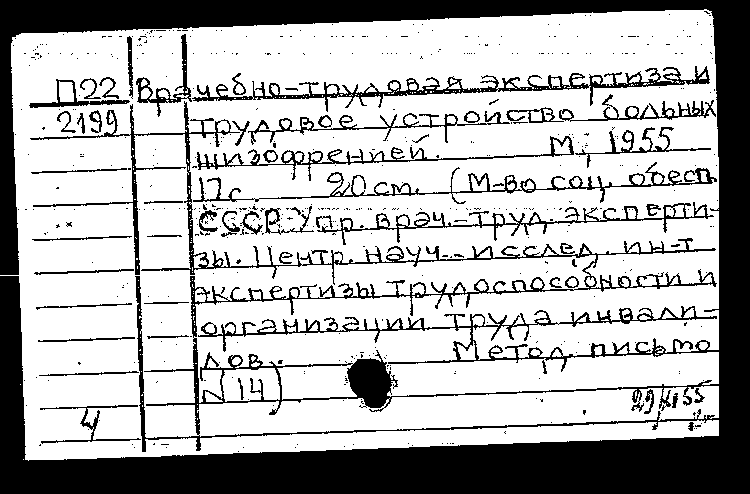 П22 Врачебно-трудовая экспертиза и
2199 трудовое устройство больных
шизофренией. М., 1955
17 с. 20 см. (М-во соц. обесп.
СССР. Упр. врач.-труд. эксперти-
зы. Центр. науч.-исслед. ин-т
экспертизы трудоспособности и
организации труда инвали-
дов. Метод. письмо
N 14)
4 29/XI 55